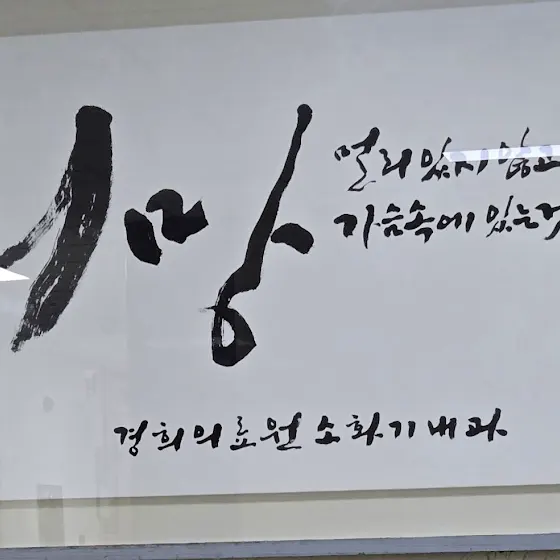 망
멀리 있지 않고
가슴속에 있는것
경희의료원 소화기내과